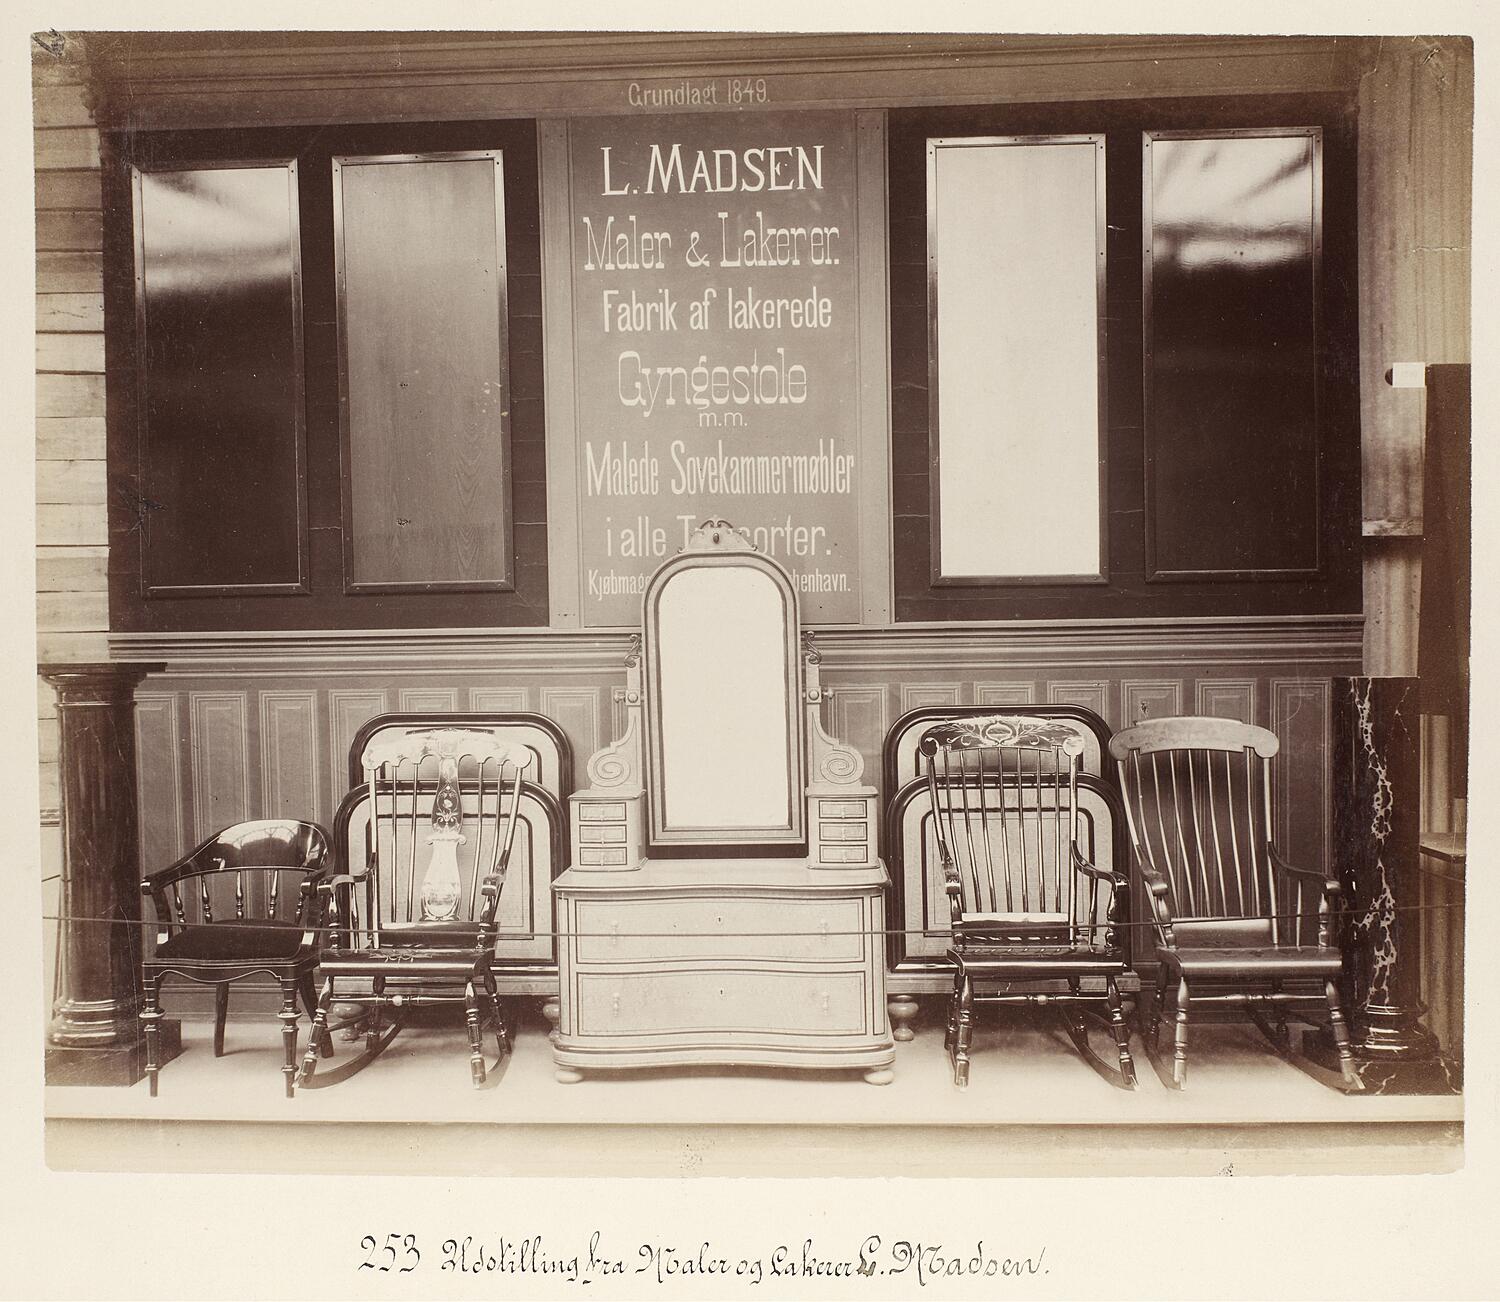 Grundlagt 1849.
L. MADSEN
Maler & Lakerer.
Fabrik af lakerede
Gyngestole
m.m.
Malede Sovekammermøbler
i alle
253 Udstilling fra Maler og Lakerer L. Madsen.